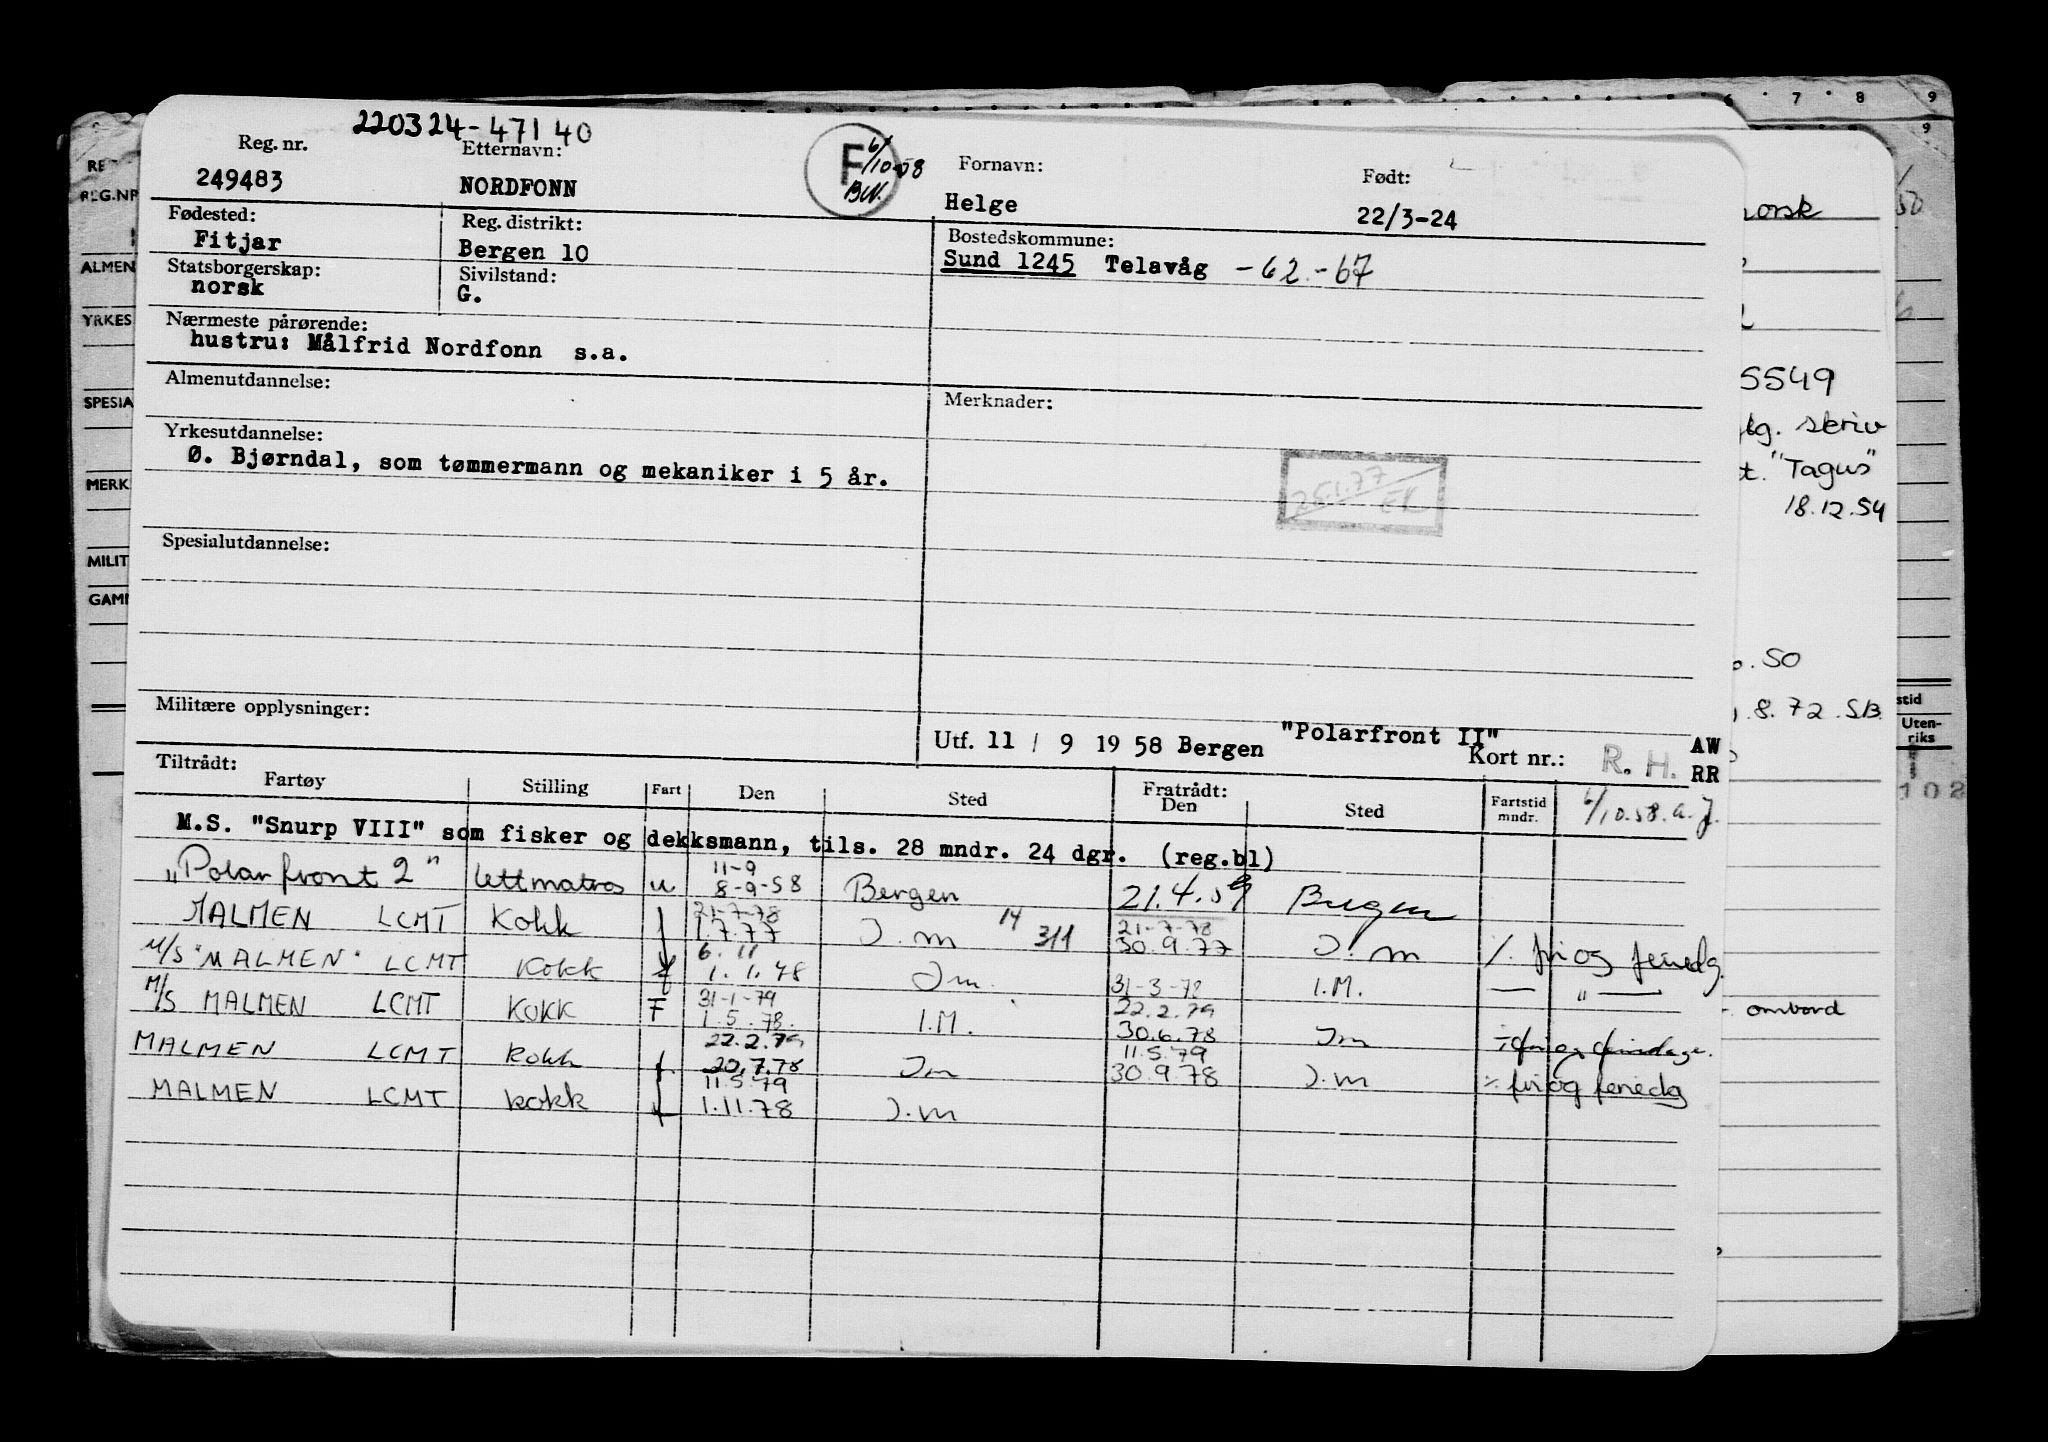 220324-47140
Reg. nr. Etternavn: Fornavn: Født:
249483 NORDFONN Helge 22/3-24
F 6/10-58 BW.
Fødested: Reg. distrikt: Bostedskommune:
Fitjar Bergen 10 Sund 1245 Telavåg -62.-67
Statsborgerskap: Sivilstand:
norsk G.
Nærmeste pårørende:
hustru: Målfrid Nordfonn s.a.
Almenutdannelse: Merknader:
Yrkesutdannelse:
Ø. Bjørndal, som tømmermann og mekaniker i 5 år.
25.1.77 EK
Spesialutdannelse:
Militære opplysninger:
Utf. 11 / 9 19 58 Bergen "Polarfront II" Kort nr.: R. H. AW RR
Tiltrådt: Fratrådt:
Fartøy Stilling Fart Den Sted Den Sted Fartstid mndr. 6/10.58. a. J.
M.S. "Snurp VIII" som fisker og dekksmann, tils. 28 mndr. 24 dgr. (reg.bl)
"Polarfront 2" lettmatros u 11-9 8-9-58 Bergen 21.4.59 Bergen
MALMEN LCMT Kokk f 21-7-78 1.7.77 I.m 14 311 21-7-78 30.9.77 I.m % fri og feriedg.
M/S "MALMEN" LCMT Kokk f 6.11 1.1.78 Im. 31-3-78 I.M. — " —
M/S MALMEN LCMT KOKK F 31-1-79 1.5.78. I.M. 22.2.79 30.6.78 Im ÷ fri og feriedage.
MALMEN LCMT Kokk f 22.2.79 20.7.78 Im 11.5.79 30.9.78 I.m % fri og feriedg
MALMEN LCMT kokk f 11.5.79 1.11.78 I.m
6 7 8 9
9
RE
REG.NR
ALMEN
YRKES
SPESIA
MERK
MILIT
GAMM
norsk
50
5549
skriv
"Tagus"
18.12.54
.50
.8.72 SB.
stid
Uten-
riks
102
ombord